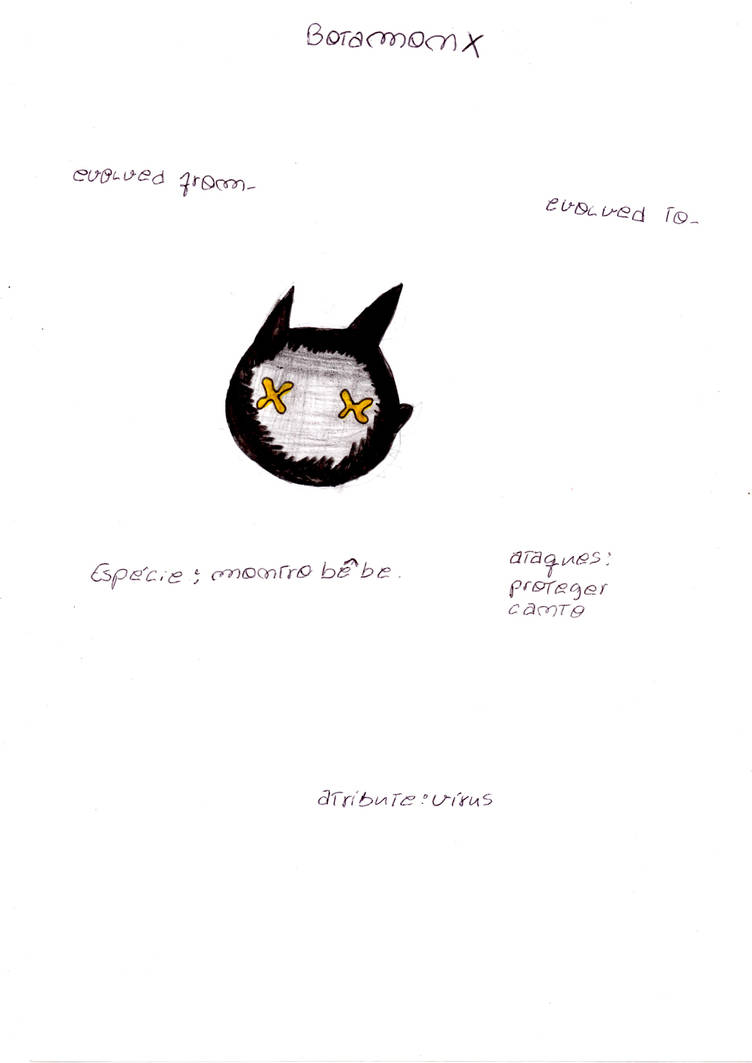 Botamon X
evolved from-
evolved to-
Espécie: montro bêbe.
ataques:
proteger
canto
atribute: vírus